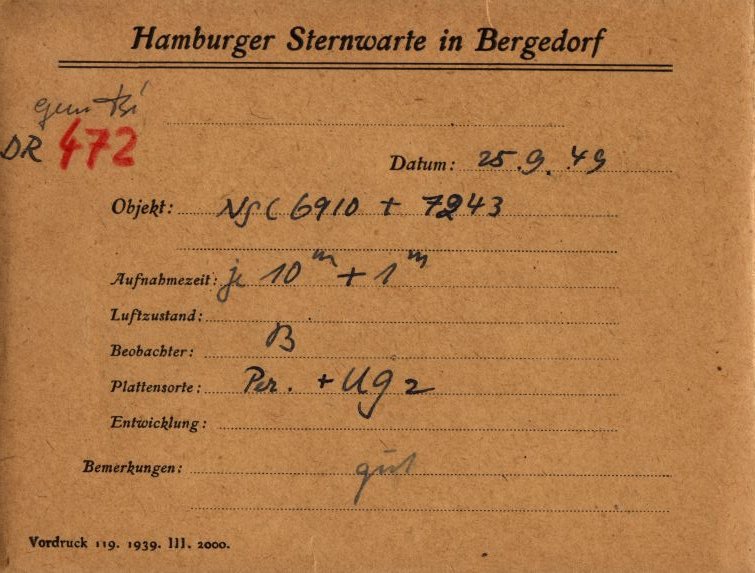 Hamburger Sternwarte in Bergedorf
gem
DR 472
Datum: 25.9.49
Objekt: NGC 6910 + 7243
Aufnahmezeit: je 10m + 1m
Luftzustand:
Beobachter: B
Plattensorte: Per. + Ug2
Entwicklung:
Bemerkungen: gut
Vordruck 119. 1939. III. 2000.